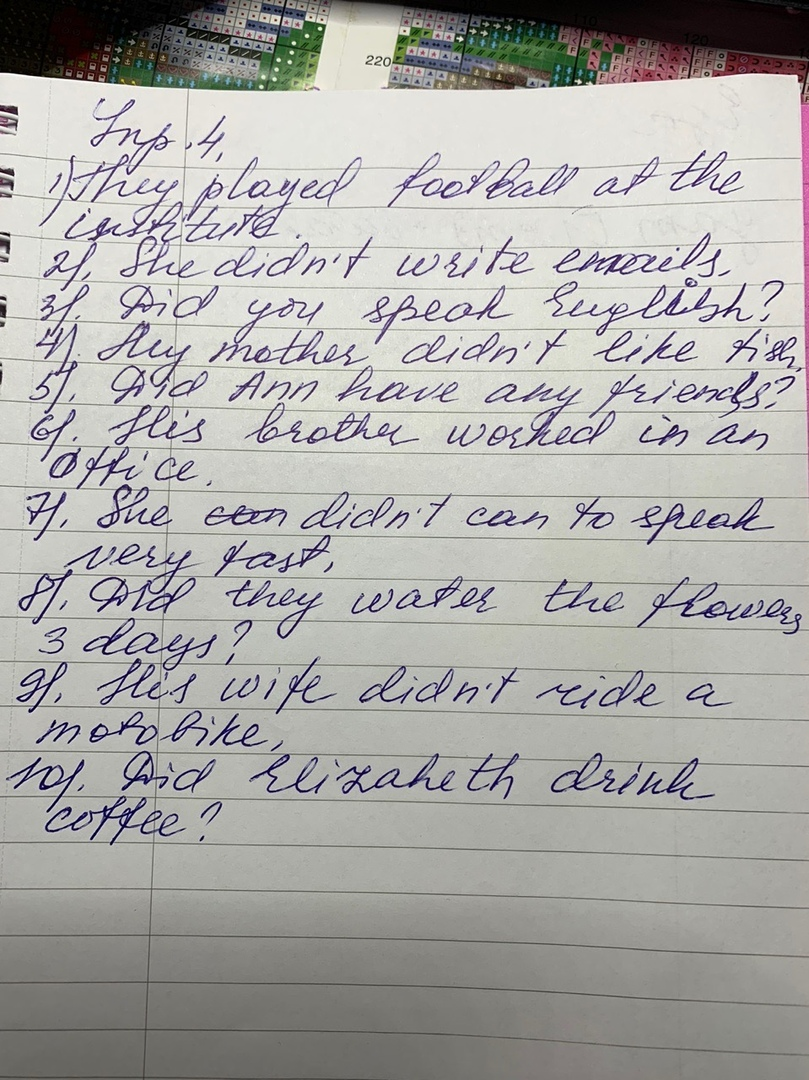 220
110
120
Упр. 4.
1) They played football at the
institute.
2). She didn't write emails.
3). Did you speak English?
4). My mother didn't like fish.
5). Did Ann have any friends?
6). His brother worked in an
office.
7). She can didn't can to speak
very fast.
8). Did they water the flowers
3 days?
9). His wife didn't ride a
motobike.
10). Did Elizabeth drink
coffee?